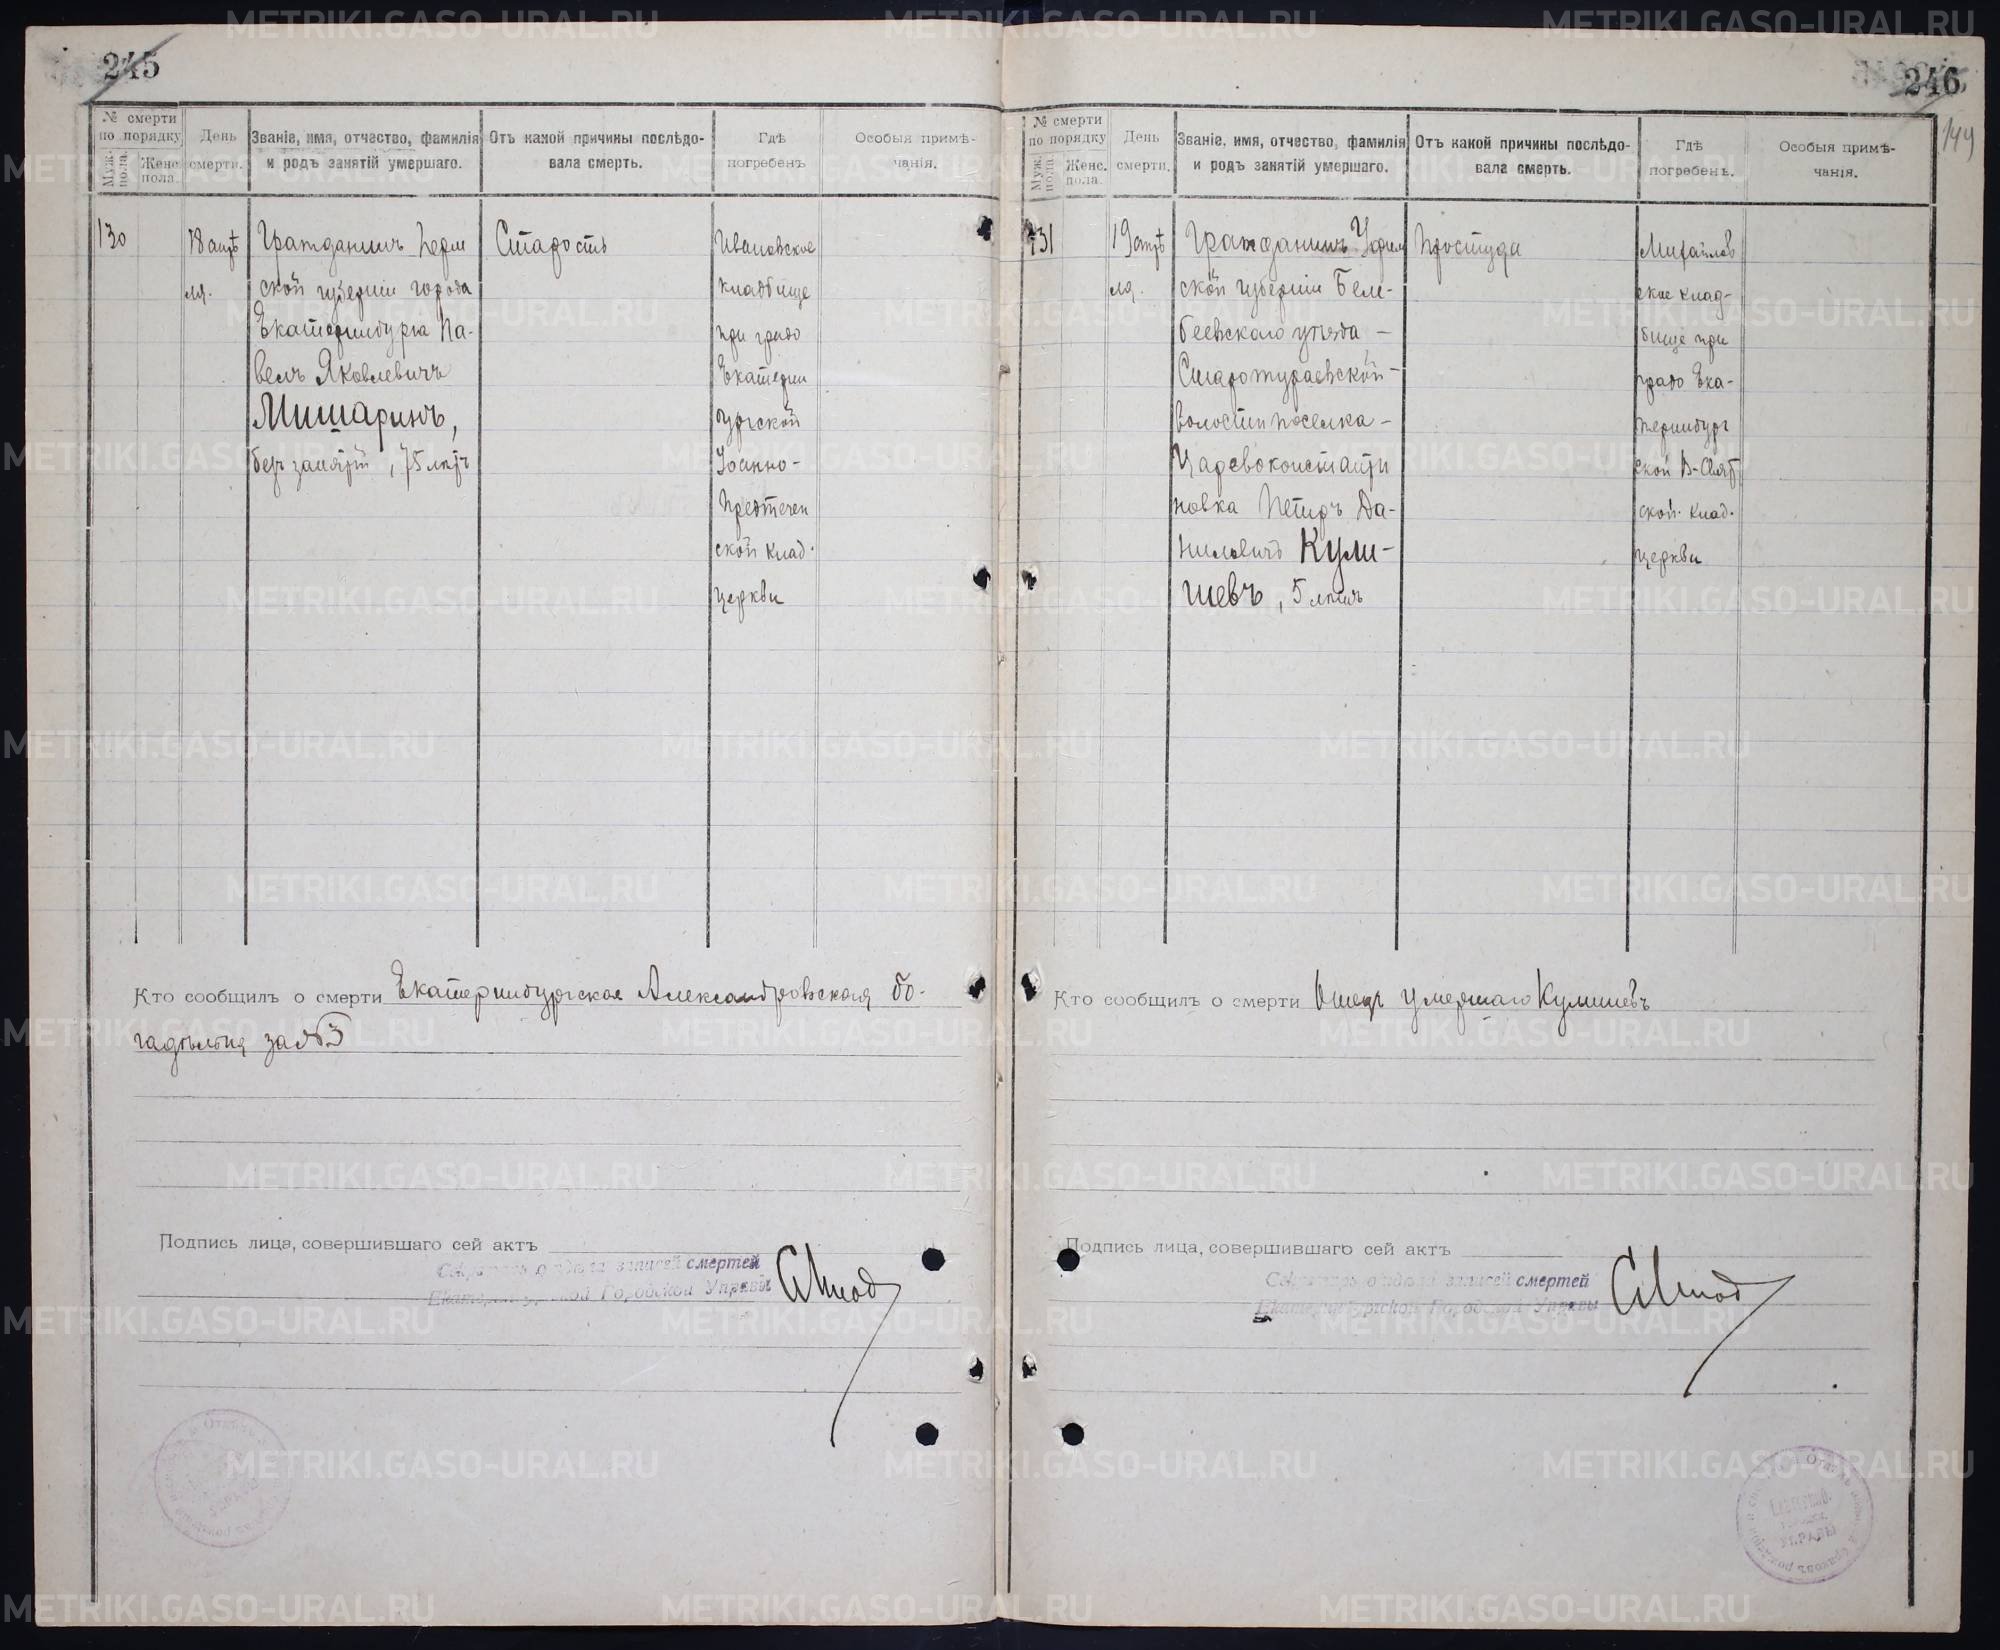 245
№ смерти
по порядку
Муж. пола.
Женс. пола.
День
смерти.
Званіе, имя, отчество, фамилія
и родъ занятій умершаго.
Отъ какой причины послѣдо-
вала смерть.
Гдѣ
погребенъ
Особыя примѣ-
чанія.
130
18 апрѣ
ля.
Гражданинъ Перм
ской губерніи города
Екатеринбурга Па-
велъ Яковлевичъ
Мишаринъ,
безъ занятій, 75 лѣтъ
Старость
Ивановское
кладбище
при градо
Екатерин
ургской
Іоанно-
Предтечен
ской клад.
церкви
Кто сообщилъ о смерти Екатеринбургская Александровская бо-
гадѣльня за №3
Подпись лица, совершившаго сей актъ
Секретарь отдѣла записей смертей
Екатеринбургской Городской Управы
246
144
№ смерти
по порядку
Муж. пола.
Женс. пола.
День
смерти.
Званіе, имя, отчество, фамилія
и родъ занятій умершаго.
Отъ какой причины послѣдо-
вала смерть.
Гдѣ
погребенъ.
Особыя примѣ-
чанія.
131
19 апрѣ
ля.
Гражданинъ Уфим
ской губерніи Беле-
беевскаго уѣзда –
Старотураевской –
волости поселка –
Царевоконстанти
новка Петръ Да-
ниловичъ Кули-
шевъ, 5 лѣтъ
Простуда
Михайлов
ское клад-
бище при
градо Ека-
теринбург
ской В-Свят
ской клад.
церкви
Кто сообщилъ о смерти Отецъ умершаго Кулишевъ
Подпись лица, совершившаго сей актъ
Секретарь отдѣла записей смертей
Екатеринбургской Городской Управы
METRIKI.GASO-URAL.RU